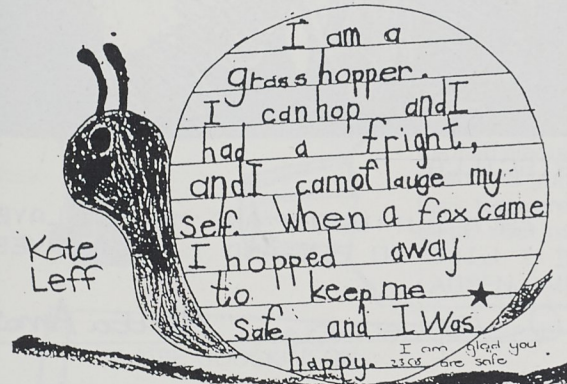 I am a
grass hopper.
I can hop and I
had a fright,
and I camoflauge my
self. When a fox came
I hopped away
to keep me
safe and I Was
happy.
I am glad you
are safe
Kate
Leff